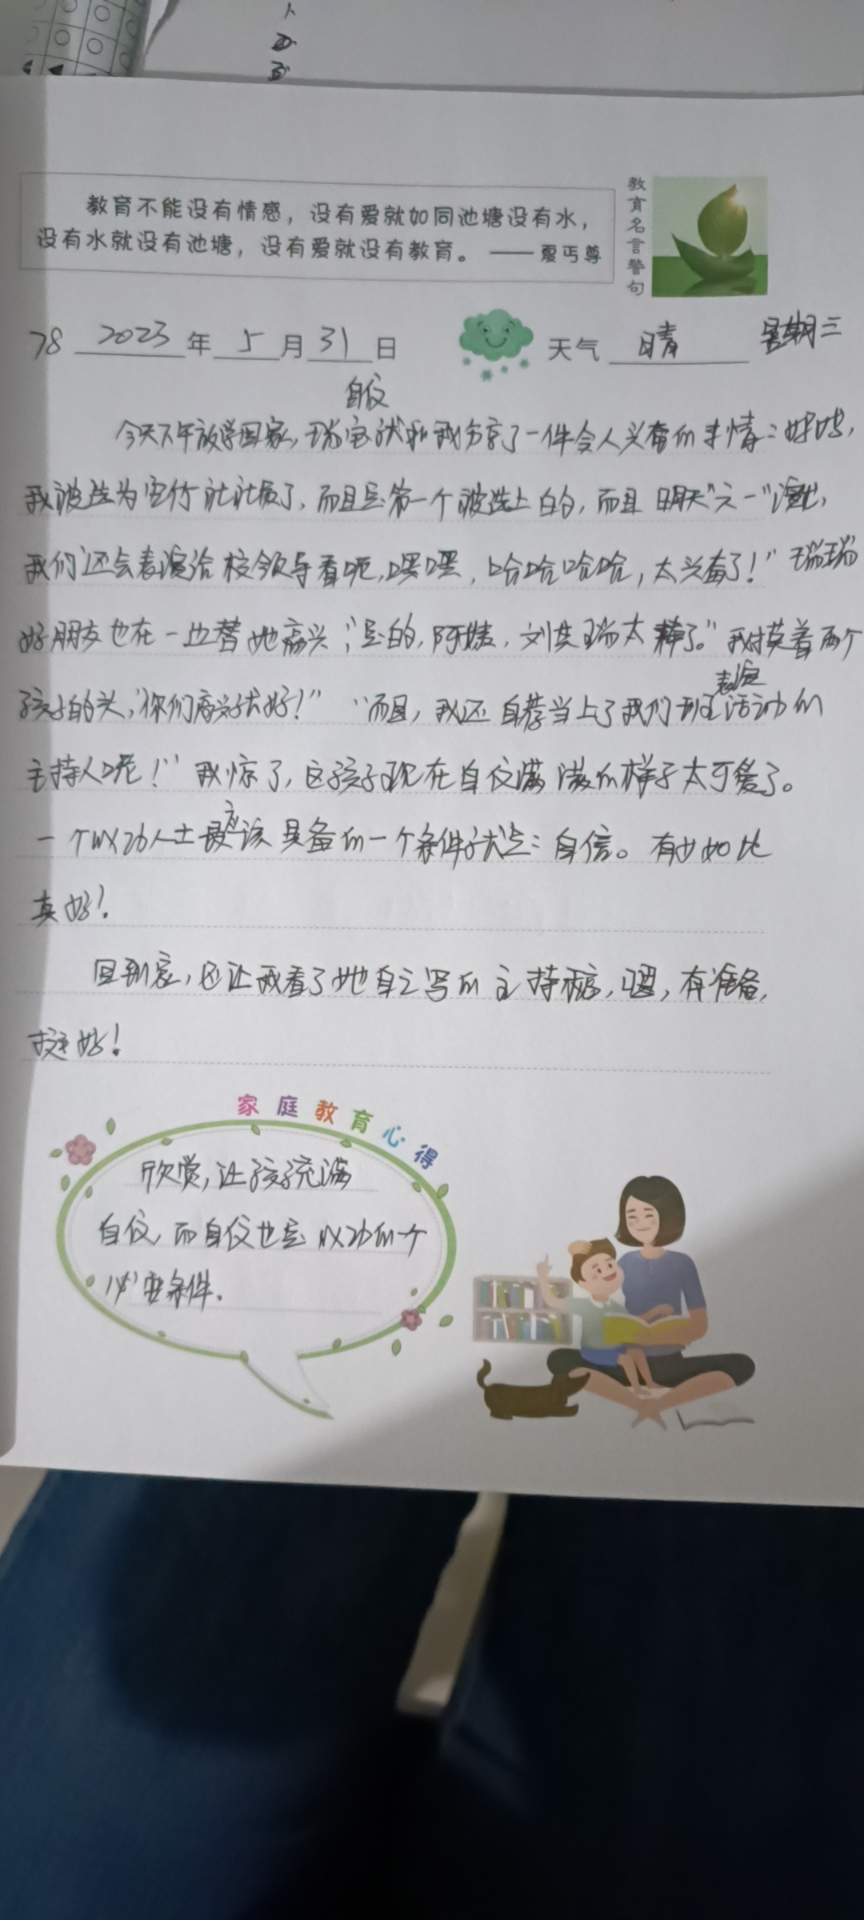 教育不能没有情感，没有爱就如同池塘没有水，
没有水就没有池塘，没有爱就没有教育。 —— 夏丏尊
教育名言警句
78 2023 年 5 月 31 日 天气 晴 星期三
自信
今天下午放学回家，瑞宝就和我分享了一件令人兴奋的事情：妈妈，
我被选为社社长了，而且是第一个被选上的，而且明天“六一”演出，
我们还会表演给校领导看呢，嘿嘿，哈哈哈哈，太兴奋了！”瑞瑞
好朋友也在一边替她高兴，“是的，阿姨，刘瑞太棒了。”我摸着两个
孩子的头，“你们高兴就好！” “而且，我还自荐当上了我们班表演活动的
主持人呢！”我惊了，这孩子现在自信满满的样子太可爱了。
一个成功人士最应该具备的一个条件就是：自信。有女如此
真好！
回到家，还让我看了她自己写的主持稿，嗯，有准备，
挺好！
家庭教育心得
欣赏，让孩子充满
自信，而自信也是成功的一个
必要条件。